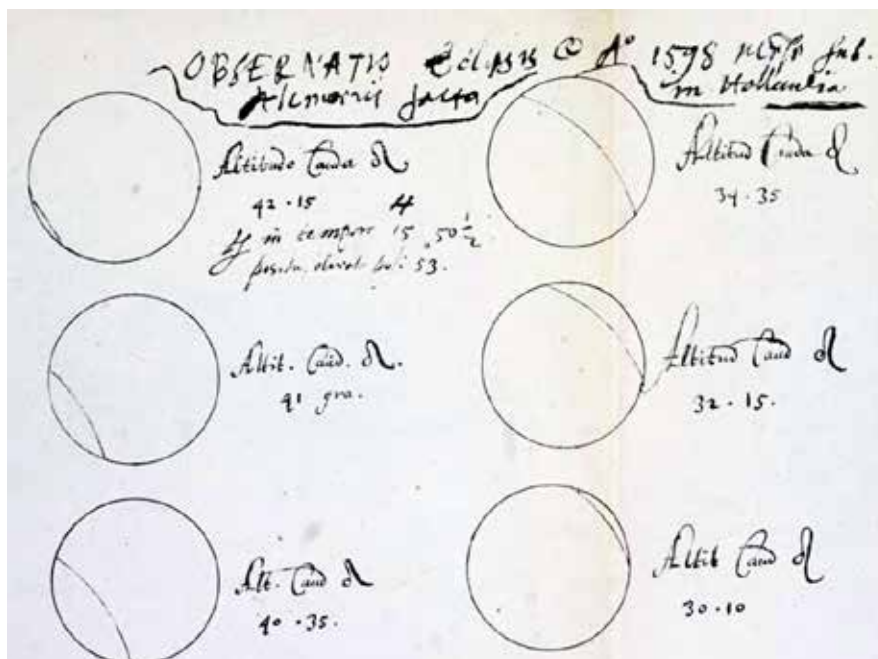 OBSERVATIO Eclipsis ☾ Aº 1598 Feb.
Alcmariæ facta in Hollandia
Altitudo Cauda ♌
42 · 15
in tempore 15 . 50 ½
elevat poli 53 .
Altit. Caud. ♌.
41 gra.
Alt. Caud ♌
40 · 35.
Altitud Cauda ♌
34 · 35
Altitud Caud ♌
32 · 15.
Altit Caud ♌
30 · 10